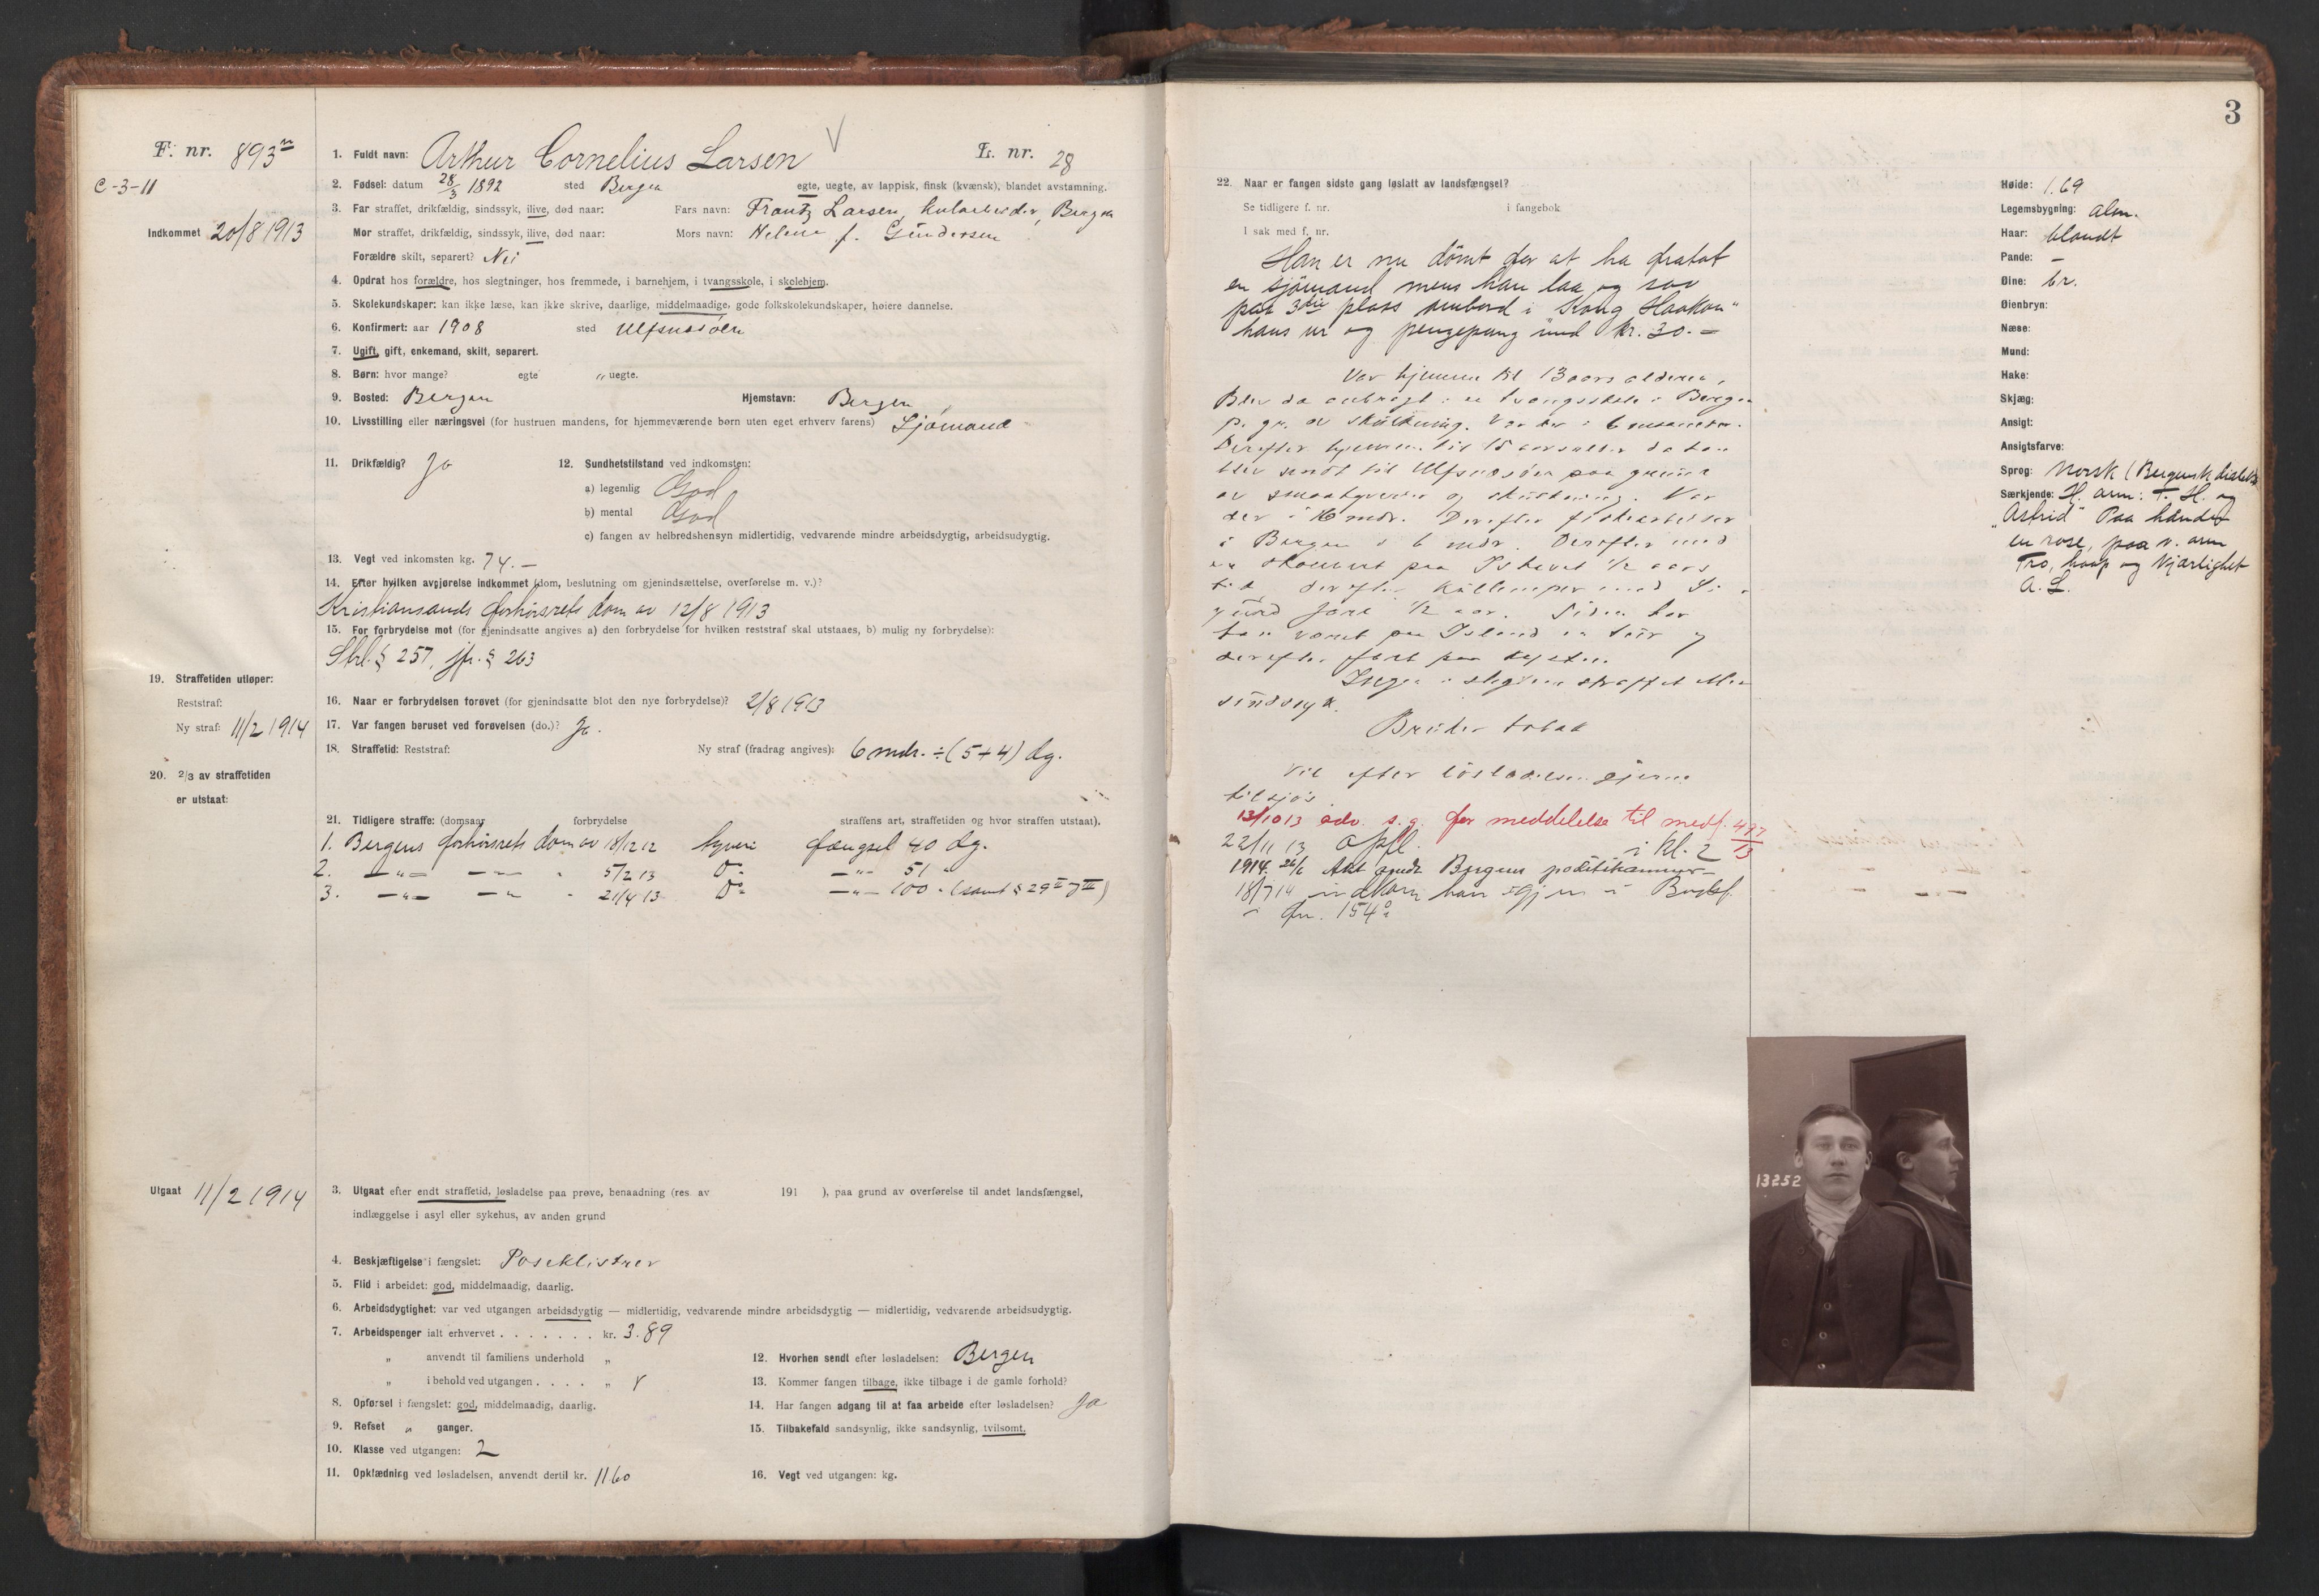 F. nr. 893
C-3-11
Indkommet 20/8 1913
1. Fuldt navn: Arthur Cornelius Larsen
L. nr. 28
2. Fødsel: datum 28/3 1892 sted Bergen egte, uegte, av lappisk, finsk (kvænsk), blandet avstamning.
3. Far straffet, drikfældig, sindssyk, ilive, død naar: Fars navn: Frantz Larsen, Bergen
Mor straffet, drikfældig, sindssyk, ilive, død naar: Mors navn: Helene f. Gundersen
Forældre skilt, separert? Nei
4. Opdrat hos forældre, hos slegtninger, hos fremmede, i barnehjem, i tvangsskole, i skolehjem.
5. Skolekundskaper: kan ikke læse, kan ikke skrive, daarlige, middelmaadige, gode folkskolekundskaper, høiere dannelse.
6. Konfirmert: aar 1908 sted Ulfsnesøen
7. Ugift, gift, enkemand, skilt, separert.
8. Børn: hvor mange? egte „ uegte.
9. Bosted: Bergen Hjemstavn: Bergen
10. Livsstilling eller næringsvei (for hustruen mandens, for hjemmeværende børn uten eget erhverv farens) Sjømand
11. Drikfældig? Ja
12. Sundhetstilstand ved indkomsten:
a) legemlig God
b) mental God
c) fangen av helbredshensyn midlertidig, vedvarende mindre arbeidsdygtig, arbeidsudygtig.
13. Vegt ved inkomsten kg. 74.—
14. Efter hvilken avgjørelse indkommet (dom, beslutning om gjenindsættelse, overførelse m. v.)?
Kristiansands forhørsrets dom av 12/8 1913
15. For forbrydelse mot (for gjenindsatte angives a) den forbrydelse for hvilken reststraf skal utstaaes, b) mulig ny forbrydelse):
Strl. § 257, jfr. § 263
16. Naar er forbrydelsen forøvet (for gjenindsatte blot den nye forbrydelse)? 2/8 1913
17. Var fangen beruset ved forøvelsen (do.)? Ja.
18. Straffetid: Reststraf: Ny straf (fradrag angives): 6 mdr. ÷ (5+4) dg.
19. Straffetiden utløper:
Reststraf:
Ny straf: 11/2 1914
20. 2/3 av straffetiden
er utstaat:
21. Tidligere straffe: (domsaar forbrydelse straffens art, straffetiden og hvor straffen utstaat).
1. Bergens forhørsrets dom av 18/12 12 tyveri fængsel 40 dg.
2. —„— —„— „ 5/2 13 Do —„— 51 „
3. —„— —„— „ 21/4 13 Do —„— 100 „ (samt § 29
Utgaat 11/2 1914
3. Utgaat efter endt straffetid, løsladelse paa prøve, benaadning (res. av 191 ), paa grund av overførelse til andet landsfængsel,
indlæggelse i asyl eller sykehus, av anden grund
4. Beskjæftigelse i fængslet: Poseklistrer
5. Flid i arbeidet: god, middelmaadig, daarlig.
6. Arbeidsdygtighet: var ved utgangen arbeidsdygtig — midlertidig, vedvarende mindre arbeidsdygtig — midlertidig, vedvarende arbeidsudygtig.
7. Arbeidspenger ialt erhvervet . . . . . . . kr. 3.89
„ anvendt til familiens underhold „
„ i behold ved utgangen . . . . „
8. Opførsel i fængslet: god, middelmaadig, daarlig.
9. Refset „ ganger.
10. Klasse ved utgangen: 2
11. Opklædning ved løsladelsen, anvendt dertil kr. 11 60
12. Hvorhen sendt efter løsladelsen: Bergen
13. Kommer fangen tilbage, ikke tilbage i de gamle forhold?
14. Har fangen adgang til at faa arbeide efter løsladelsen? Ja
15. Tilbakefald sandsynlig, ikke sandsynlig, tvilsomt.
16. Vegt ved utgangen: kg.
3
22. Naar er fangen sidste gang løslatt av landsfængsel?
Se tidligere f. nr. i fangebok
I sak med f. nr.
Han er nu dömt for at ha fratat
en sjømand mens han laa og sov
paa 3die plass ombord i "Kong Haakon"
hans ur og pengepung med kr. 30.—
Var hjemme til 13 aars alderen,
Blev da anbragt i en tvangsskole i Bergen
p. gr. av skulkning. Var der i 6 maaneder.
Derefter hjemme til 15 aars alder da han
blev sendt til Ulfsnesöen paa grund
av smaatyverier og skulkning. Var
der i 16 mdr. Derefter
i Bergen i 6 mdr. Derefter med
en skonnert paa Ishavet 1/2 aars
tid, derefter kullemper med
Jarl 1/2 aar. Siden har
han været paa Island en tur og
derefter faret paa kysten.
Ingen i slegten straffet eller
sindssyk.
Bruker tobak
Vil efter lösladelsen gjerne
til sjøs.
13/10 13 adv. s. g. for meddelelse til medf. 497/13
22/11 13 opfl. i kl. 2
1914. 26/6 Akt sendt Bergens politikammer
18/7 14 indkom han igjen i Bodsf.
fnr. 154
Høide: 1.69
Legemsbygning: alm.
Haar: blondt
Pande: —
Øine: br.
Øienbryn:
Næse:
Mund:
Hake:
Skjæg:
Ansigt:
Ansigtsfarve:
Sprog: Norsk (Bergensk dialekt)
Særkjende: H. arm: T. H. og
"Astrid" Paa haanden
en rose, paa v. arm
Tro, haap og kjærlighet
A. L.
13252